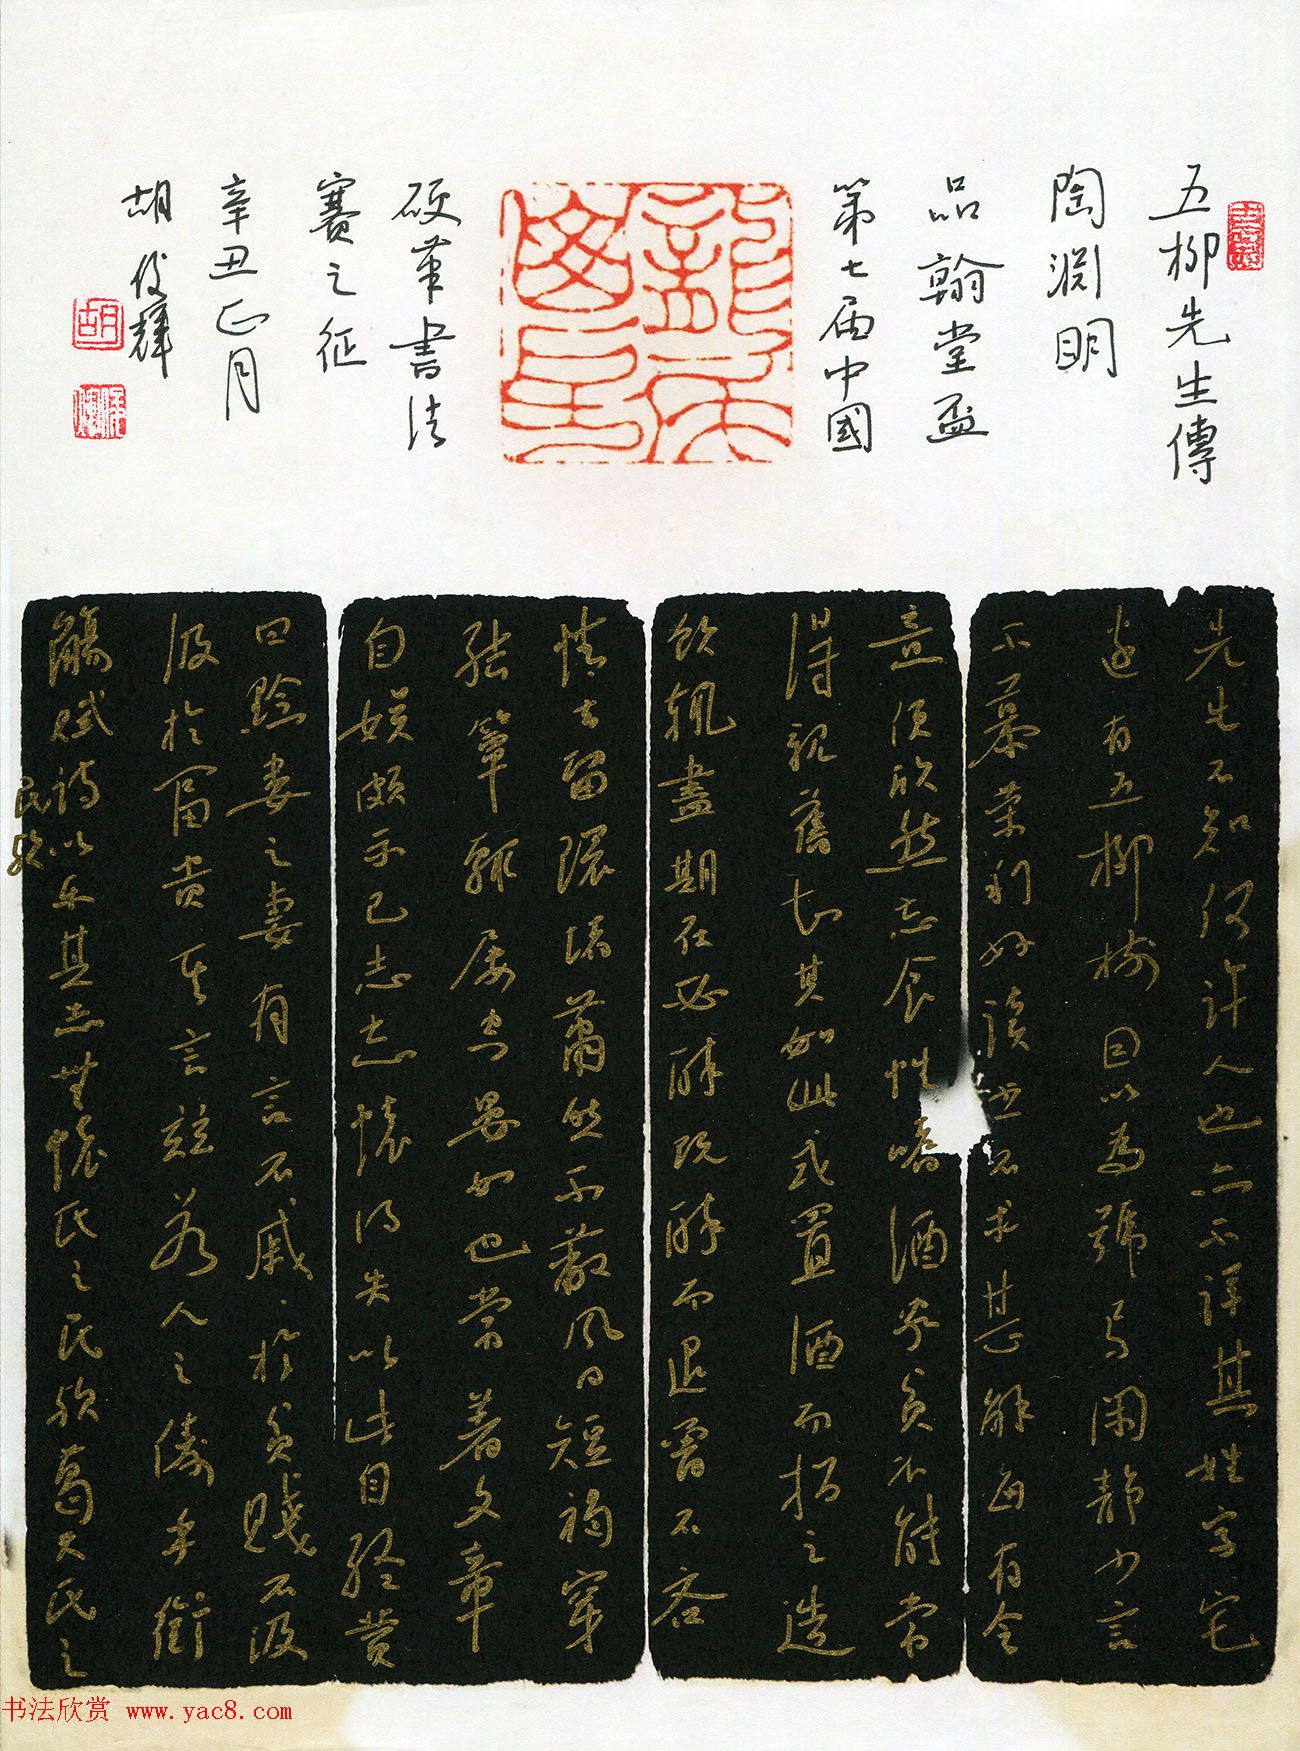 五柳先生傳
陶淵明
品翰堂盃
第七届中國
硬筆書法
賽之征
辛丑正月
胡俊輝
胡
先生不知何許人也亦不詳其姓字宅
邊有五柳樹因以為號焉閑靜少言
不慕榮利好讀書不求甚解每有会
意便欣然忘食性嗜酒家貧不能常
得親舊知其如此或置酒而招之造
飲輒盡期在必醉既醉而退曾不吝
情去留環堵蕭然不蔽風日短褐穿
結簞瓢屢空晏如也常著文章
自娱頗示己志忘懷得失以此自終贊
曰黔婁之妻有言不戚戚於貧賤不汲
汲於富貴其言兹若人之儔乎銜
觴賦詩以樂其志無懷氏之民歟葛天氏之
民歟
书法欣赏 www.yac8.com